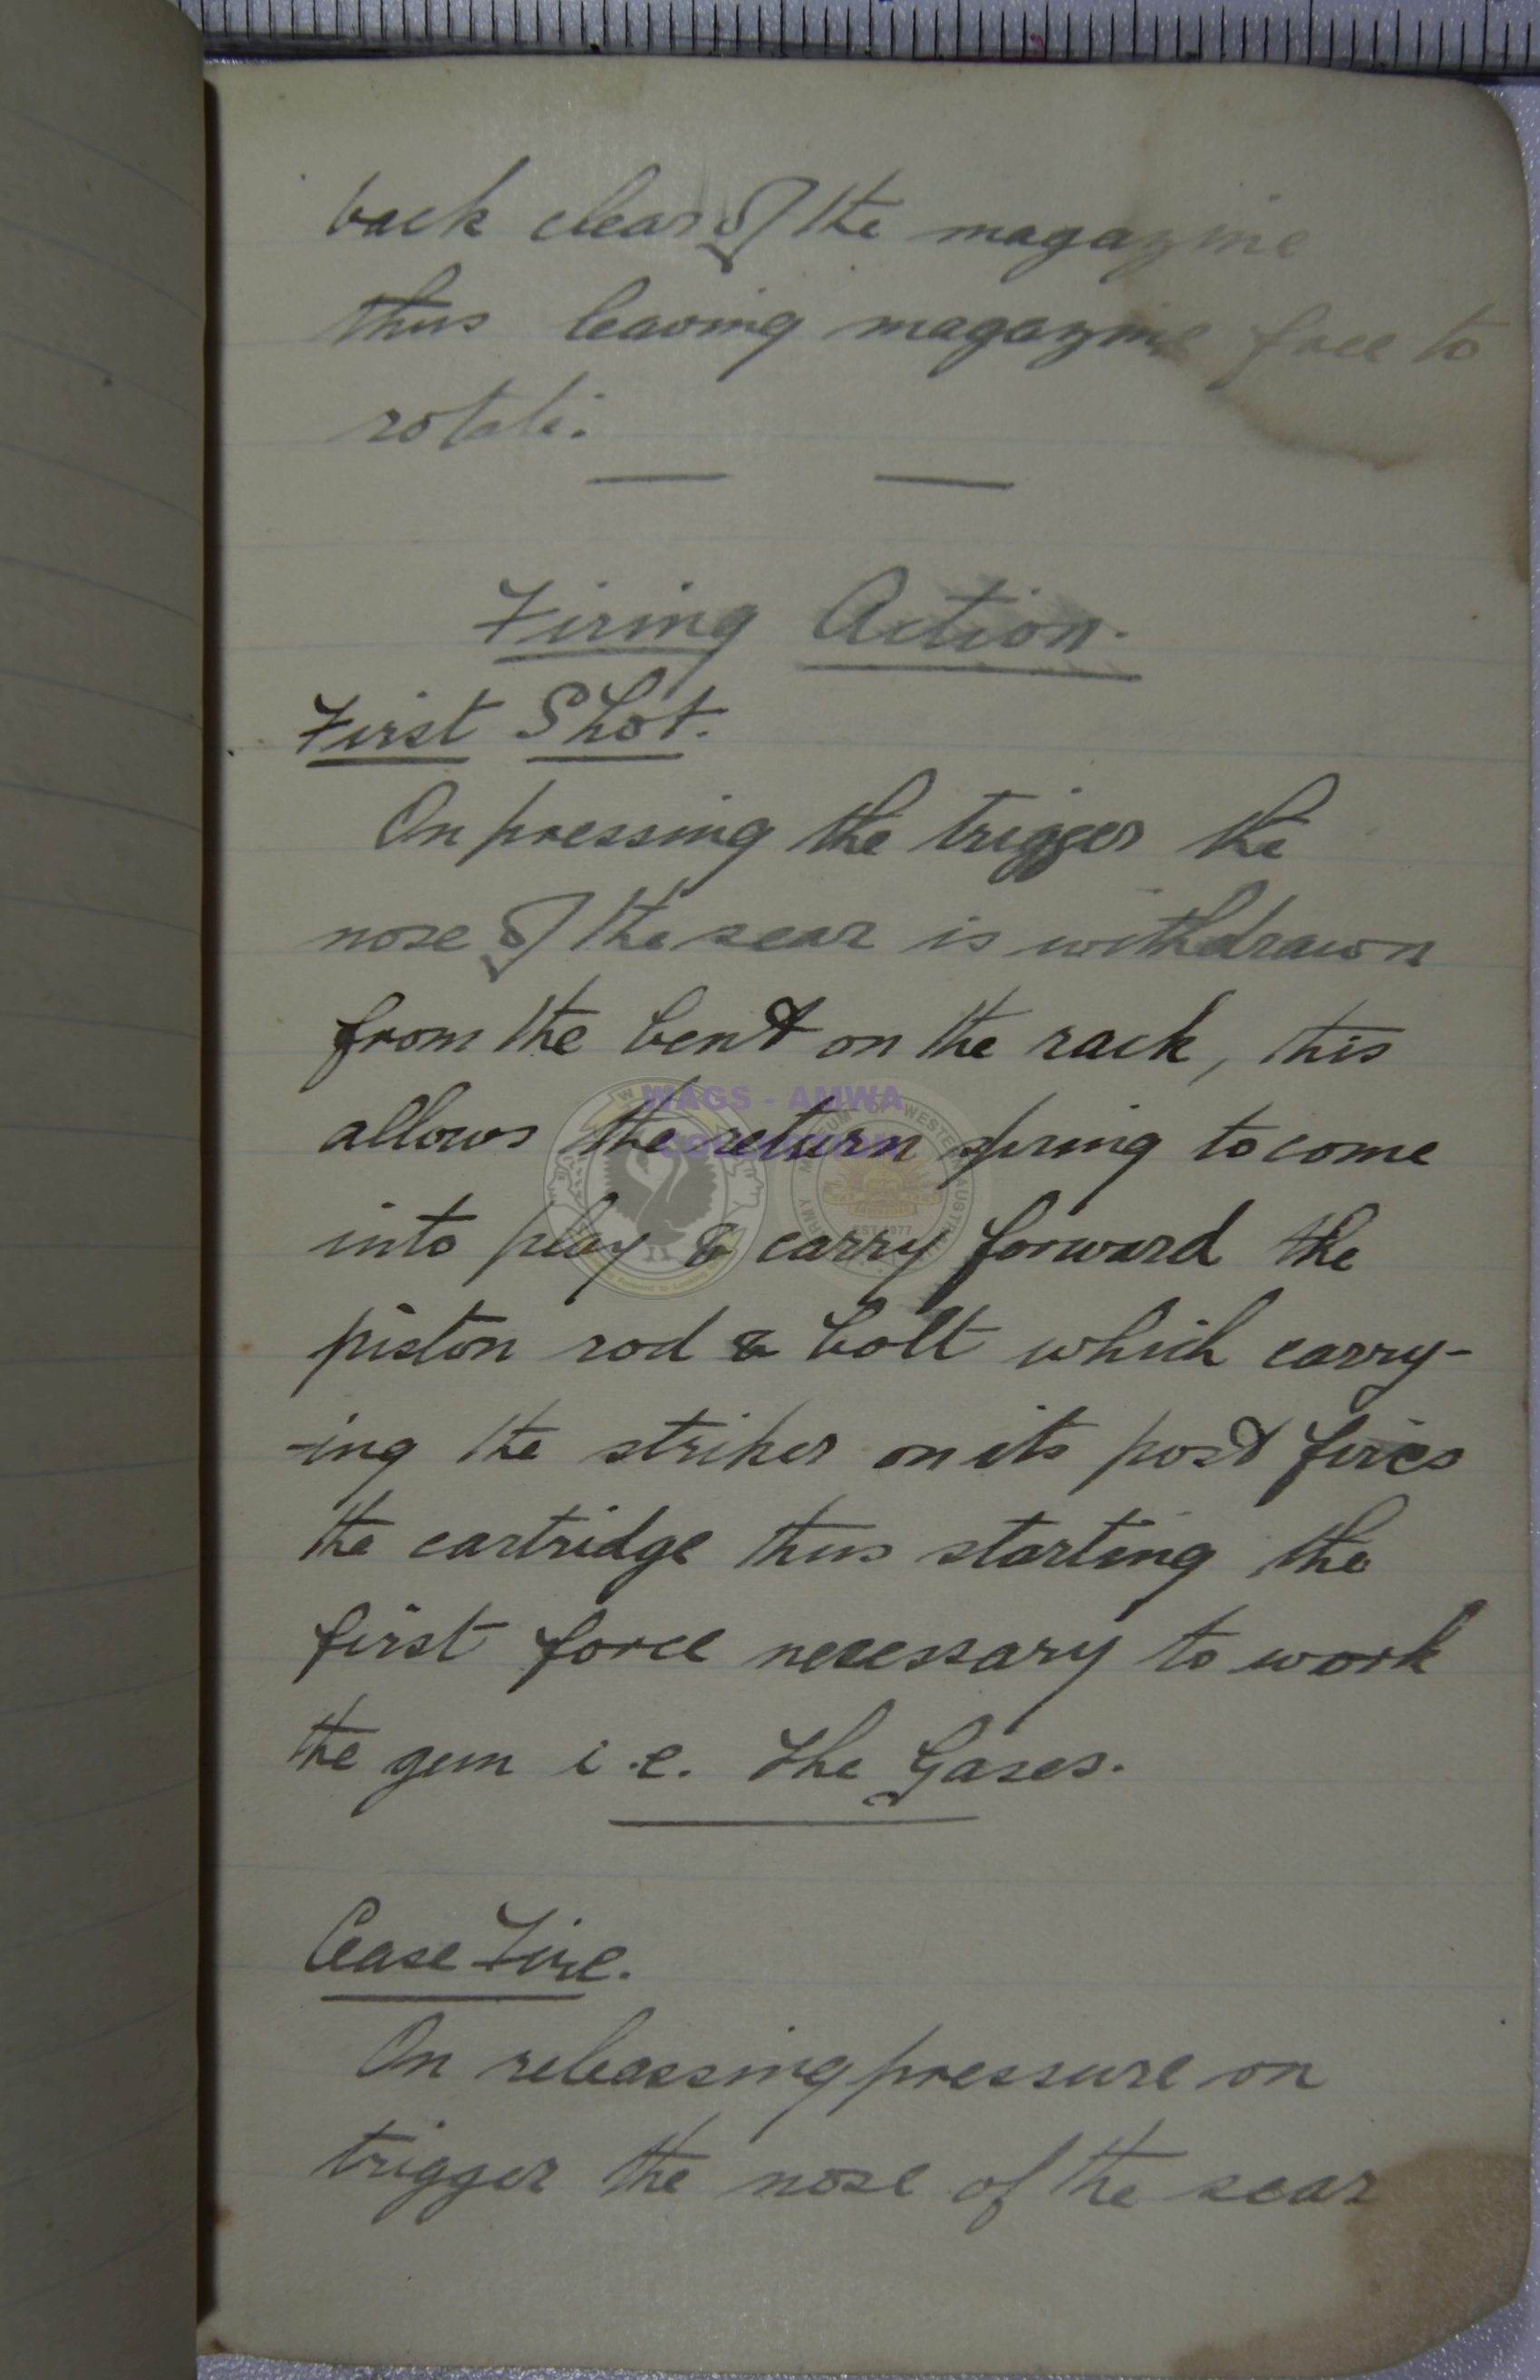 back clear of the magazine
thus leaving magazine free to
rotate.
Firing Action.
First Shot.
On pressing the trigger the
nose of the sear is withdrawn
from the bent on the rack, this
allows the return spring to come
into play & carry forward the
piston rod & bolt which carry-
-ing the striker on its post fires
the cartridge thus starting the
first force necessary to work
the gun i.e. The Gases.
Cease Fire.
On releassing pressure on
trigger the nose of the sear
WAGS - AMWA
COLLECTION
EST 1977